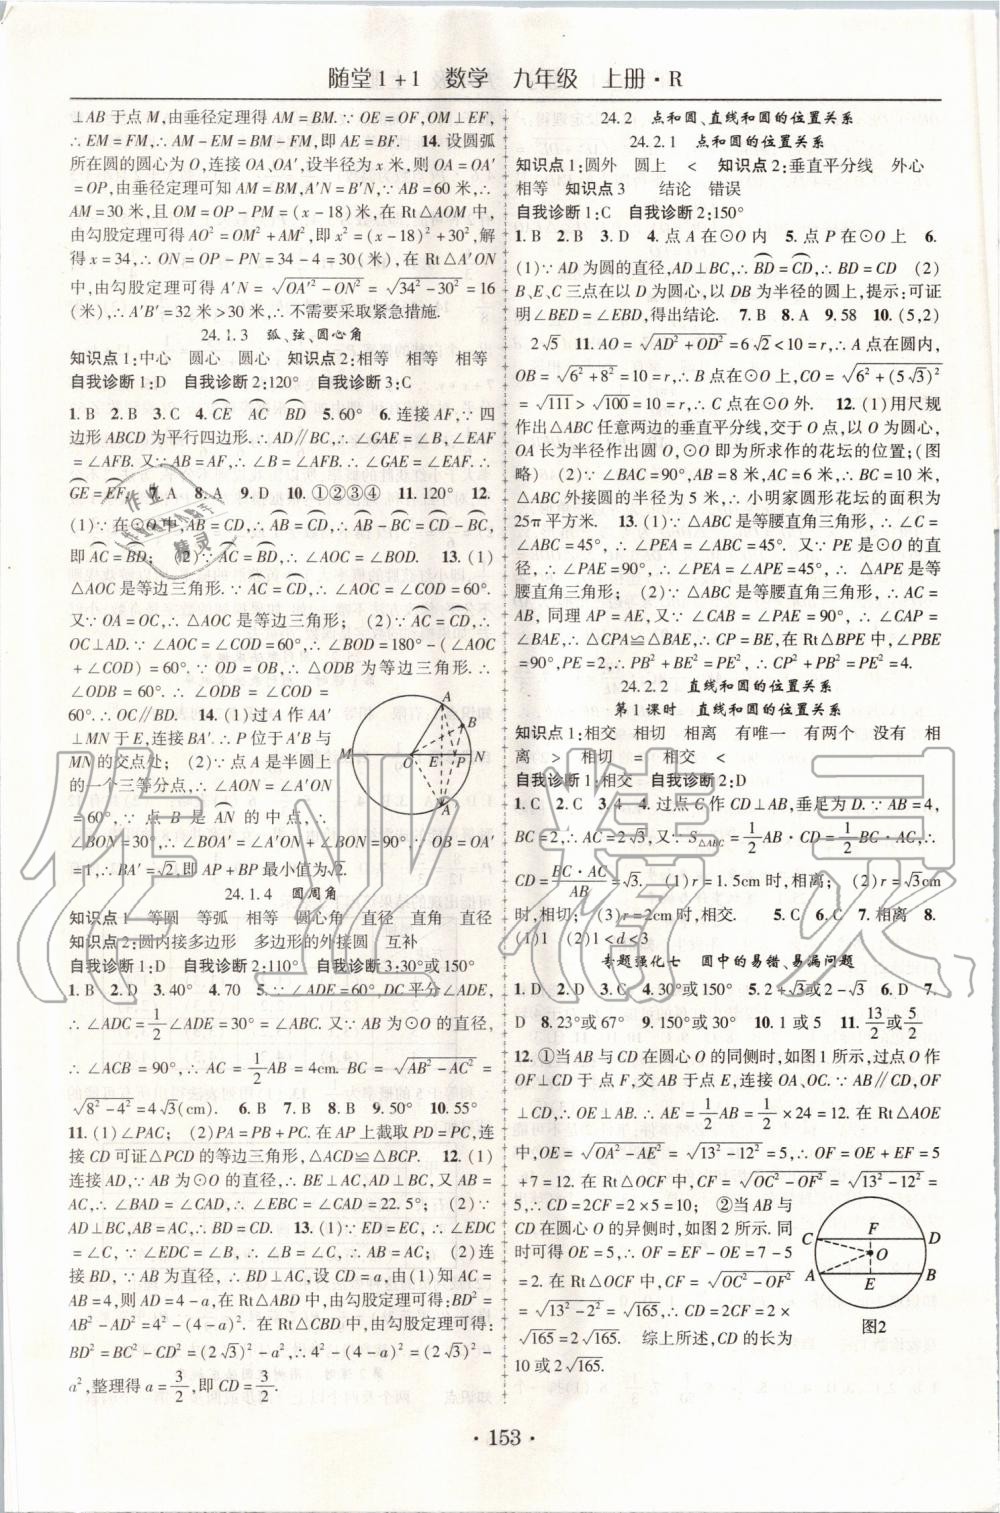 随堂1+1 数学 九年级 上册·R
⊥AB于点M,由垂径定理得AM=BM.∵OE=OF,OM⊥EF,
∴EM=FM,∴AM-EM=BM-FM,即AE=BF. 14. 设圆弧
所在的圆的圆心为O,连接OA、OA′,设半径为x米,则OA=OA′
=OP,由垂径定理可知AM=BM,A′N=B′N,∵AB=60米,∴
AM=30米,且OM=OP-PM=(x-18)米,在Rt△AOM中,
由勾股定理可得AO²=OM²+AM²,即x²=(x-18)²+30²,解
得x=34,∴ON=OP-PN=34-4=30(米),在Rt△A′ON
中,由勾股定理可得A′N=√(OA′²-ON²)=√(34²-30²)=16
(米),∴A′B′=32米>30米,∴不需要采取紧急措施.
24.1.3 弧、弦、圆心角
知识点1:中心 圆心 圆心 知识点2:相等 相等 相等
自我诊断1:D 自我诊断2:120° 自我诊断3:C
1. B 2. B 3. C 4. CE⌒ AC⌒ BD⌒ 5. 60° 6. 连接AF,∵四
边形ABCD为平行四边形.∴AD∥BC,∴∠GAE=∠B,∠EAF
=∠AFB. 又∵AB=AF,∴∠B=∠AFB.∴∠GAE=∠EAF,∴
GE⌒=EF⌒. 7. A 8. A 9. D 10. ①②③④ 11. 120° 12.
(1)∵在⊙O中,AB=CD,∴AB⌒=CD⌒,∴AB⌒-BC⌒=CD⌒-BC⌒,
即AC⌒=BD⌒; (2)∵AC⌒=BD⌒,∴∠AOC=∠BOD. 13. (1)
△AOC是等边三角形,∵AC⌒=CD⌒,∴∠AOC=∠COD=60°.
又∵OA=OC,∴△AOC是等边三角形; (2)∵AC⌒=CD⌒,∴
OC⊥AD. 又∵∠AOC=∠COD=60°,∴∠BOD=180°-(∠AOC
+∠COD)=60°.∵OD=OB,∴△ODB为等边三角形.∴
∠ODB=60°.∴∠ODB=∠COD=
60°.∴OC∥BD. 14. (1)过A作AA′
⊥MN于E,连接BA′.∴P位于A′B与
MN的交点处; (2)∵点A是半圆上
的一个三等分点,∴∠AON=∠A′ON
=60°,∵点B是AN⌒的中点,∴
∠BON=30°,∴∠BOA′=∠A′ON+∠BON=90°.∵OB=OA′
=1,∴BA′=√2.即AP+BP最小值为√2.
24.1.4 圆周角
知识点1 等圆 等弧 相等 圆心角 直径 直角 直径
知识点2:圆内接多边形 多边形的外接圆 互补
自我诊断1:D 自我诊断2:110° 自我诊断3:30°或150°
1. B 2. D 3. 40° 4. 70 5. ∵∠ADE=60°,DC平分∠ADE,
∴∠ADC=1/2∠ADE=30°=∠ABC. 又∵AB为⊙O的直径,
∴∠ACB=90°,∴AC=1/2AB=4cm. BC=√(AB²-AC²)=
√(8²-4²)=4√3(cm). 6. B 7. B 8. B 9. 50° 10. 55°
11. (1)∠PAC; (2)PA=PB+PC. 在AP上截取PD=PC,连
接CD可证△PCD的等边三角形,△ACD≌△BCP. 12. (1)
连接AD,∵AB为⊙O的直径,∴BE⊥AC,AD⊥BC,又AB=
AC,∴∠BAD=∠CAD,∴∠EBC=∠CAD=22.5°; (2)∵
AD⊥BC,AB=AC,∴BD=CD. 13. (1)∵ED=EC,∴∠EDC
=∠C,∵∠EDC=∠B,∴∠B=∠C,∴AB=AC; (2)连接
BD,∵AB为直径,∴BD⊥AC,设CD=a,由(1)知AC=
AB=4,则AD=4-a,在Rt△ABD中,由勾股定理可得:BD²=
AB²-AD²=4²-(4-a)². 在Rt△CBD中,由勾股定理可得:
BD²=BC²-CD²=(2√3)²-a².∴4²-(4-a)²=(2√3)²-
a²,整理得a=3/2,即CD=3/2.
24.2 点和圆、直线和圆的位置关系
24.2.1 点和圆的位置关系
知识点1:圆外 圆上 < 知识点2:垂直平分线 外心
相等 知识点3 结论 错误
自我诊断1:C 自我诊断2:150°
1. B 2. B 3. D 4. 点A在⊙O内 5. 点P在⊙O上 6.
(1)∵AD为圆的直径,AD⊥BC,∴BD⌒=CD⌒,∴BD=CD (2)
B、E、C三点在以D为圆心,以DB为半径的圆上,提示:可证
明∠BED=∠EBD,得出结论. 7. B 8. A 9. 58 10. (5,2)
2√5 11. AO=√(AD²+OD²)=6√2<10=r,∴A点在圆内,
OB=√(6²+8²)=10=r,∴B点在⊙O上,CO=√(6²+(5√3)²)
=√111>√100=10=r,∴C点在⊙O外. 12. (1)用尺规
作出△ABC任意两边的垂直平分线,交于O点,以O为圆心,
OA长为半径作出圆O,⊙O即为所求作的花坛的位置;(图
略) (2)∵∠BAC=90°,AB=8米,AC=6米,∴BC=10米,
∴△ABC外接圆的半径为5米,∴小明家圆形花坛的面积为
25π平方米. 13. (1)∵△ABC是等腰直角三角形,∴∠C=
∠ABC=45°,∴∠PEA=∠ABC=45°. 又∵PE是⊙O的直
径,∴∠PAE=90°,∴∠PEA=∠APE=45°,∴△APE是等
腰直角三角形; (2)∵△ABC是等腰直角三角形,∴AC=
AB,同理AP=AE,又∵∠CAB=∠PAE=90°,∴∠CAP=
∠BAE,∴△CPA≌△BAE,∴CP=BE,在Rt△BPE中,∠PBE
=90°,PE=2,∴PB²+BE²=PE²,∴CP²+PB²=PE²=4.
24.2.2 直线和圆的位置关系
第1课时 直线和圆的位置关系
知识点1:相交 相切 相离 有唯一 有两个 没有 相
离 > 相切 = 相交 <
自我诊断1:相交 自我诊断2:D
1. C 2. C 3. 4 4. 过点C作CD⊥AB,垂足为D.∵AB=4,
BC=2,∴AC=2√3,又∵S△ABC=1/2AB·CD=1/2BC·AC,∴
CD=BC·AC/AB=√3. (1)r=1.5cm时,相离; (2)r=√3cm
时,相切; (3)r=2cm时,相交. 5. C 6. C 7. 相离 8.
(1)1 (2)1<d<3
专题强化七 圆中的易错、易漏问题
1. D 2. D 3. C 4. 30°或150° 5. 2+√3或2-√3 6. D 7.
D 8. 23°或67° 9. 150°或30° 10. 1或5 11. 13/2或5/2
12. ①当AB与CD在圆心O的同侧时,如图1所示,过点O作
OF⊥CD于点F,交AB于点E,连接OA、OC,∵AB∥CD,OF
⊥CD,∴OE⊥AB,∴AE=1/2AB=1/2×24=12. 在Rt△AOE
中,OE=√(OA²-AE²)=√(13²-12²)=5,∴OF=OE+EF=5
+7=12. 在Rt△OCF中,CF=√(OC²-OF²)=√(13²-12²)=
5,∴CD=2CF=2×5=10; ②当AB与
CD在圆心O的异侧时,如图2所示. 同
时可得OE=5,∴OF=EF-OE=7-5
=2. 在Rt△OCF中,CF=√(OC²-OF²)
=√(13²-2²)=√165,∴CD=2CF=2×
√165=2√165. 综上所述,CD的长为
10或2√165.
图2
·153·